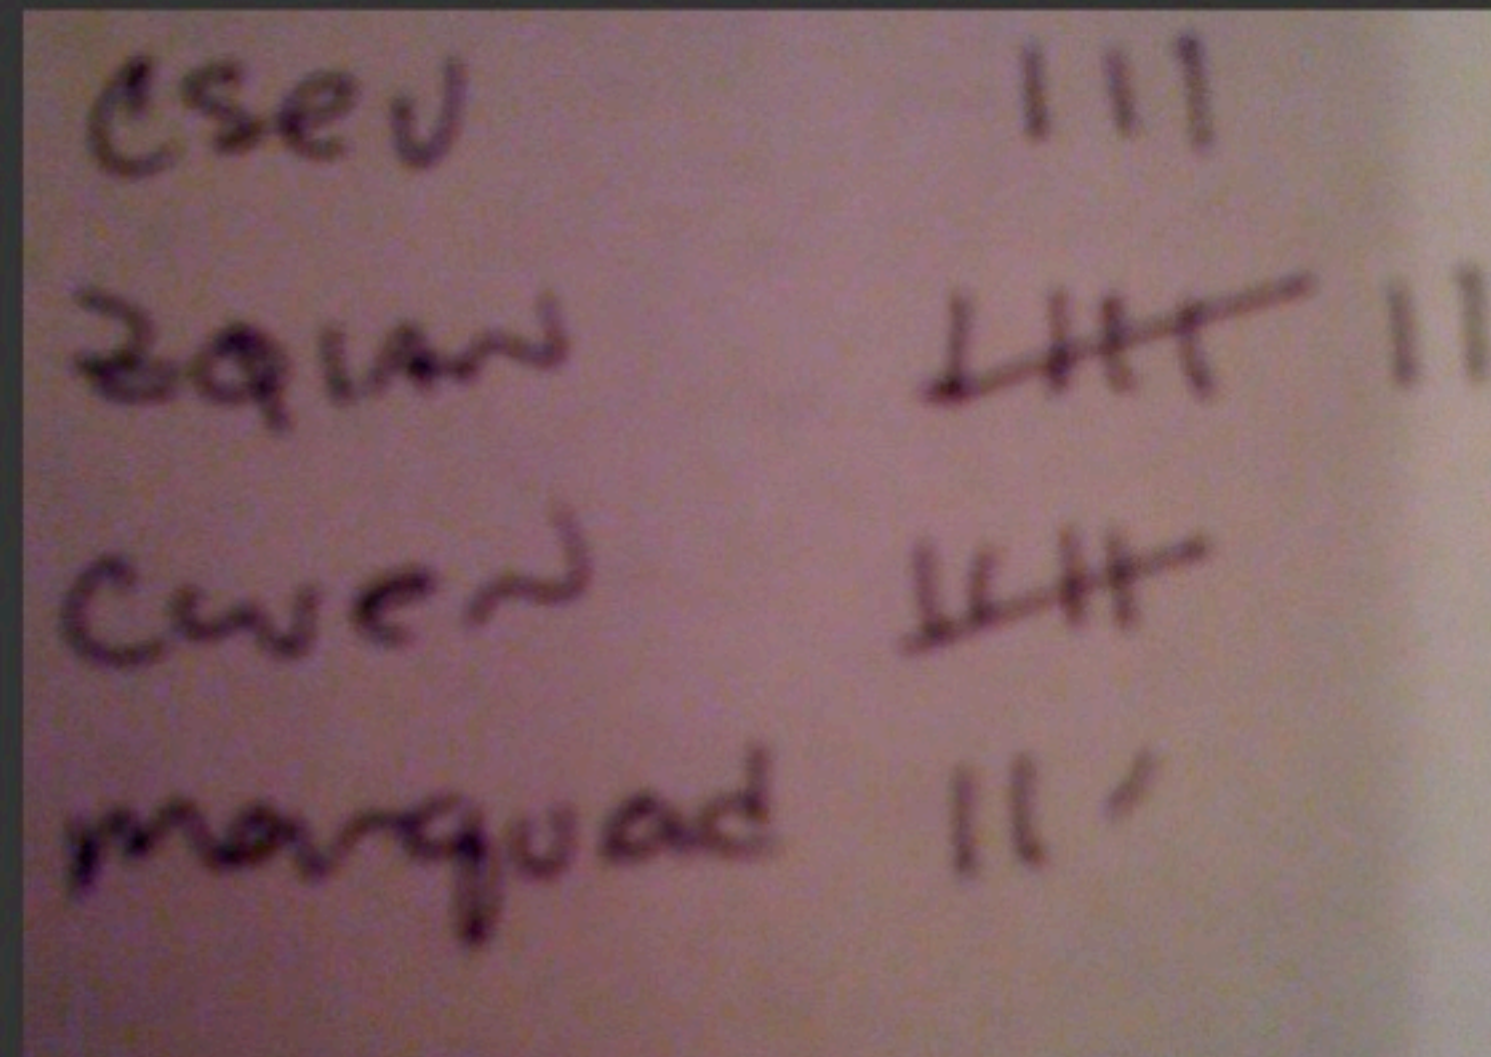 csev III
zqian IIII II
cwen IIII
marquad II /